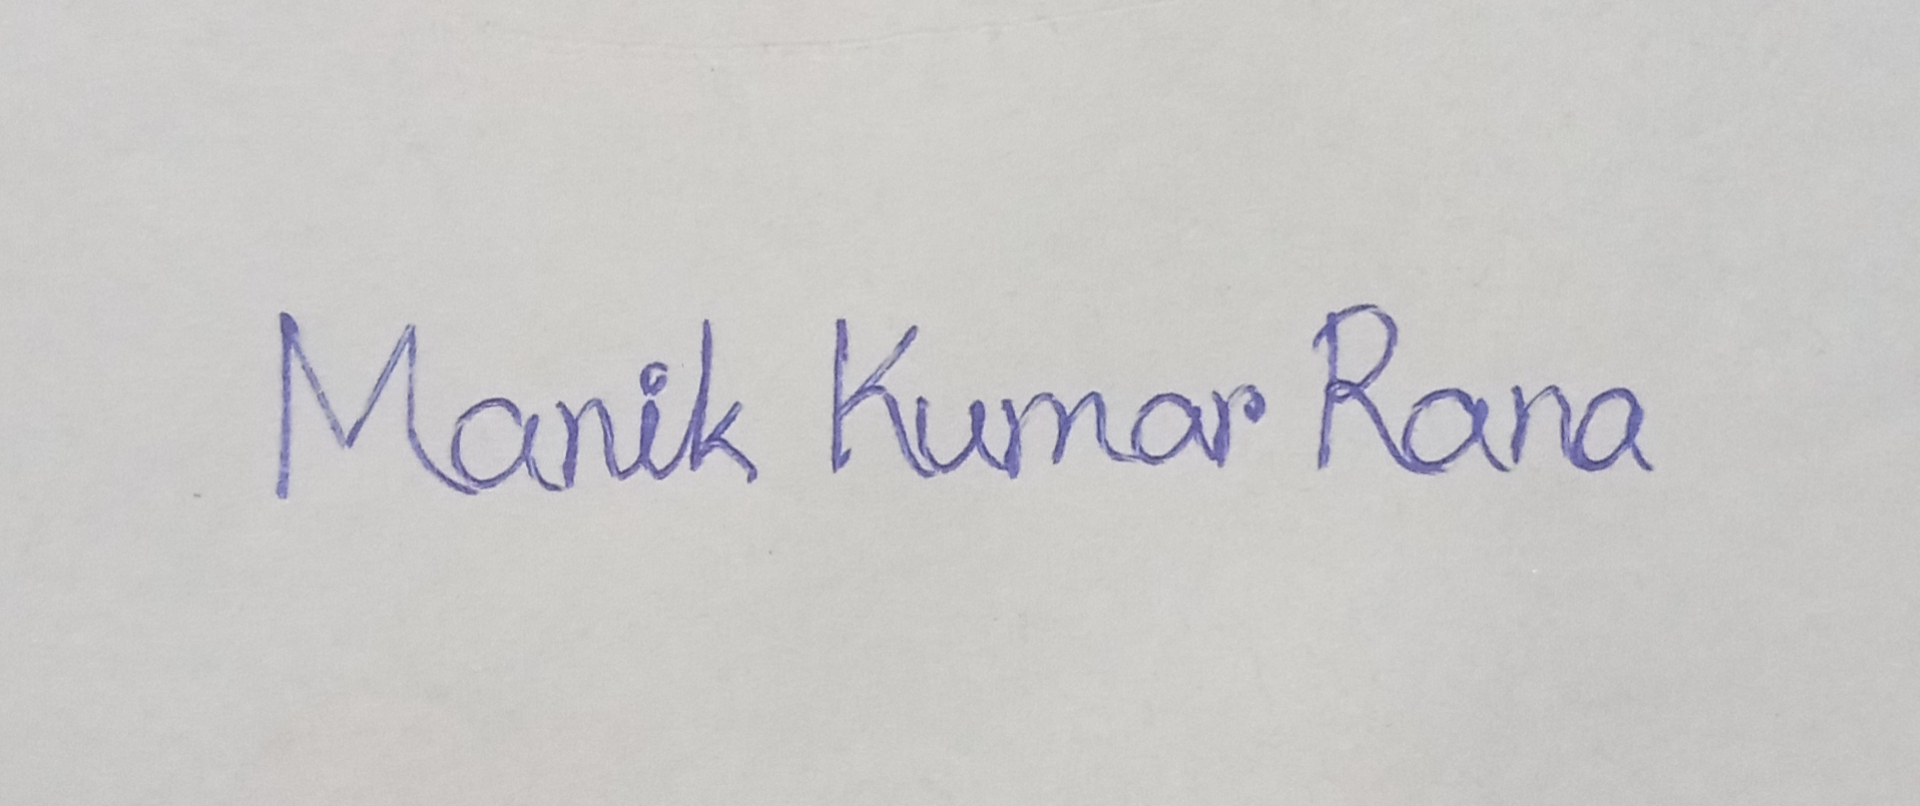 Manik Kumar Rana